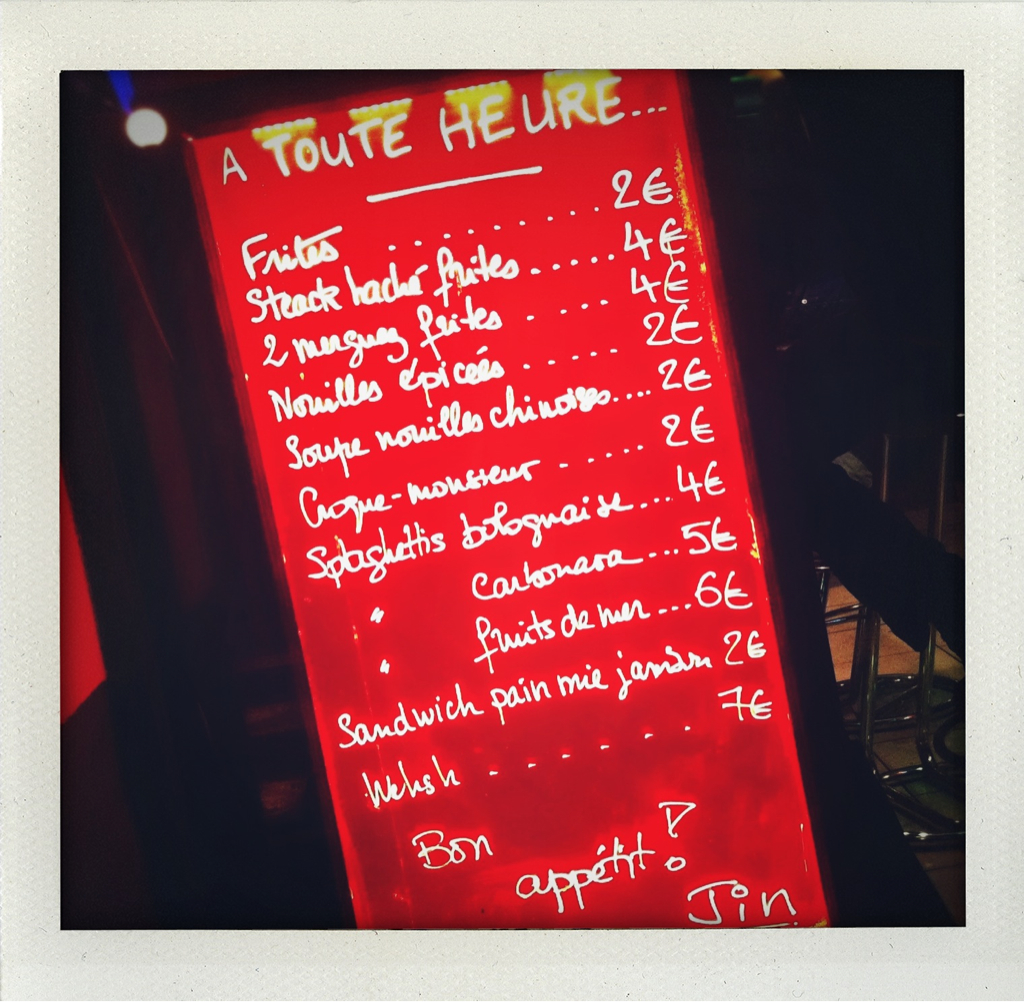 A TOUTE HEURE...
Frites ......... 2€
Steack haché frites ..... 4€
2 merguez frites .... 4€
Nouilles épiceés ...... 2€
Soupe nouilles chinoises.... 2€
Croque-monsieur ...... 2€
Sptaghettis bolognaise... 4€
" Carbonara ... 5€
" fruits de mer .... 6€
Sandwich pain mie jambon 2€
Welsh ...... 7€
Bon
appétit !
Jin